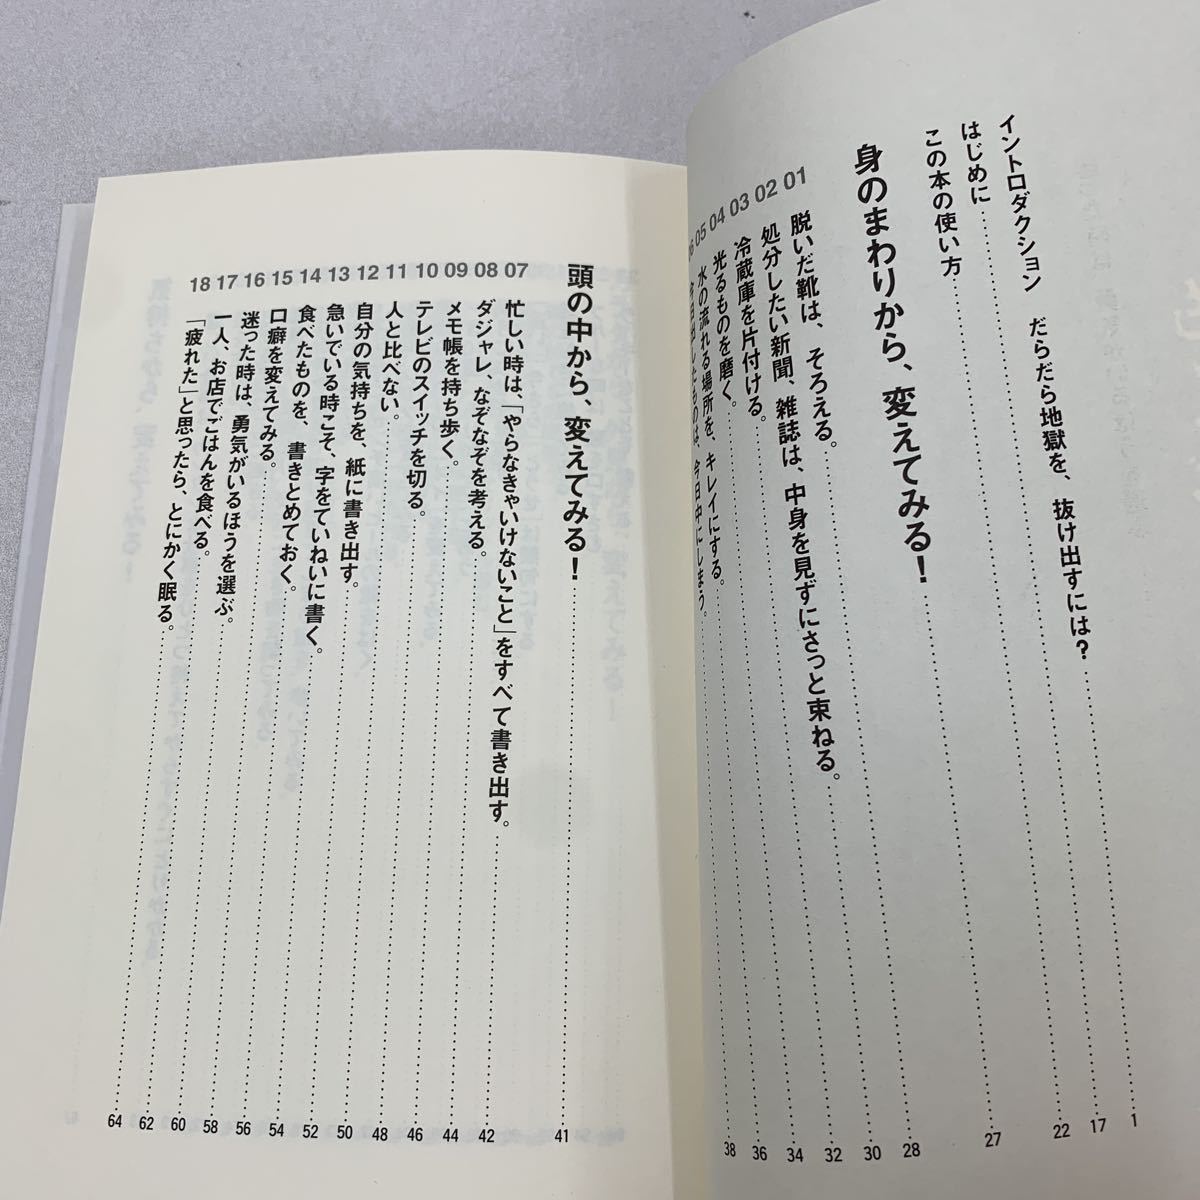 イントロダクション だらだら地獄を、抜け出すには？ 1
はじめに 17
この本の使い方 22
身のまわりから、変えてみる！ 27
01 脱いだ靴は、そろえる。 28
02 処分したい新聞、雑誌は、中身を見ずにさっと束ねる。 30
03 冷蔵庫を片付ける。 32
04 光るものを磨く。 34
05 水の流れる場所を、キレイにする。 36
6 今日出したものは、今日中にしまう。 38
頭の中から、変えてみる！ 41
07 忙しい時は、「やらなきゃいけないこと」をすべて書き出す。 42
08 ダジャレ、なぞなぞを考える。 44
09 メモ帳を持ち歩く。 46
10 テレビのスイッチを切る。 48
11 人と比べない。 50
12 自分の気持ちを、紙に書き出す。 52
13 急いでいる時こそ、字をていねいに書く。 54
14 食べたものを、書きとめておく。 56
15 口癖を変えてみる。 58
16 迷った時は、勇気がいるほうを選ぶ。 60
17 一人、お店でごはんを食べる。 62
18 「疲れた」と思ったら、とにかく眠る。 64